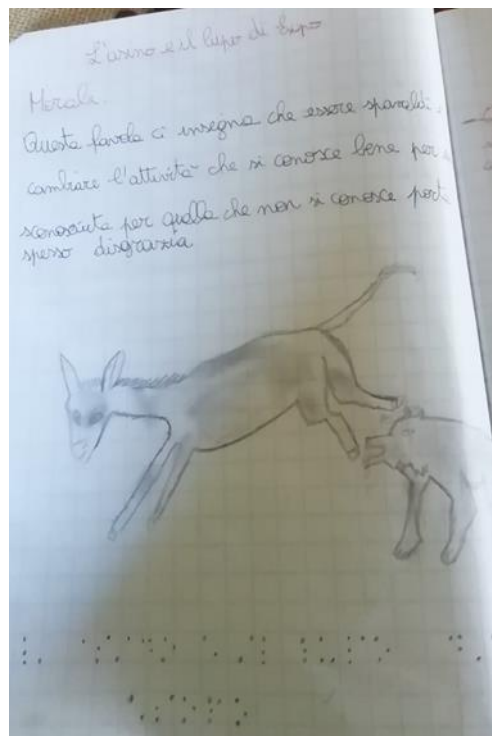 L'asino e il lupo di Esopo
Morale.
Questa favola ci insegna che essere spavaldi
cambiare l'attività che si conosce bene per
sconosciuta per quella che non si conosce port
spesso disgrazia